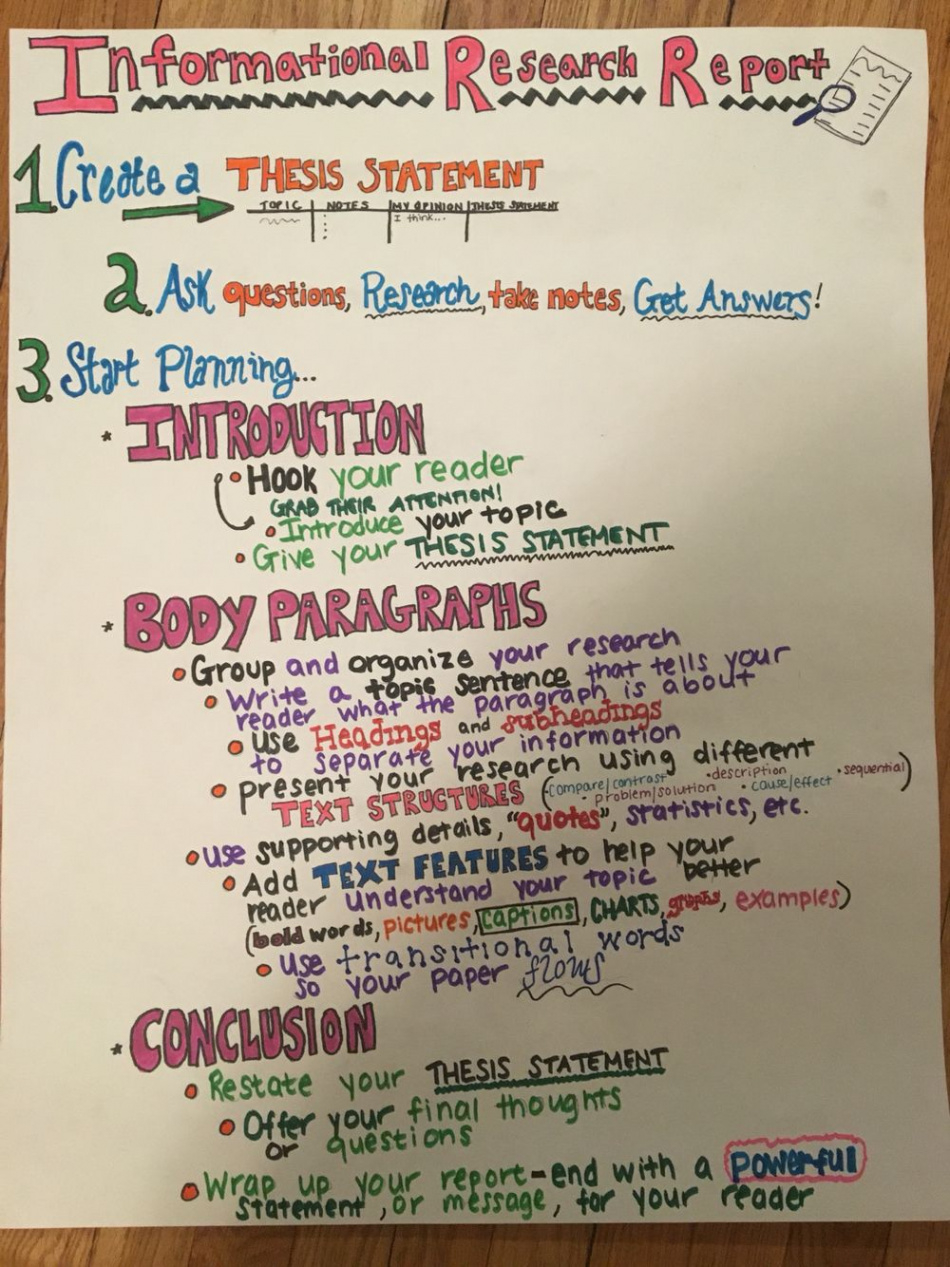 Informational Research Report
1. Create a THESIS STATEMENT
TOPIC NOTES MY OPINION THESIS STATEMENT
I think...
2. Ask questions, Research, take notes, Get Answers!
3. Start Planning...
* INTRODUCTION
• Hook your reader
GRAB THEIR ATTENTION!
• Introduce your topic
• Give your THESIS STATEMENT
* BODY PARAGRAPHS
• Group and organize your research
• Write a topic sentence that tells your
reader what the paragraph is about
• use Headings and subheadings
to separate your information
• present your research using different
TEXT STRUCTURES (compare/contrast •description •sequential)
• problem/solution • cause/effect
• use supporting details, "quotes", statistics, etc.
• Add TEXT FEATURES to help your
reader understand your topic better
(bold words, pictures, captions, CHARTS, graphs, examples)
• use transitional words
so your paper flows
* CONCLUSION
• Restate your THESIS STATEMENT
• Offer your final thoughts
or questions
• Wrap up your report-end with a powerful
statement, or message, for your reader